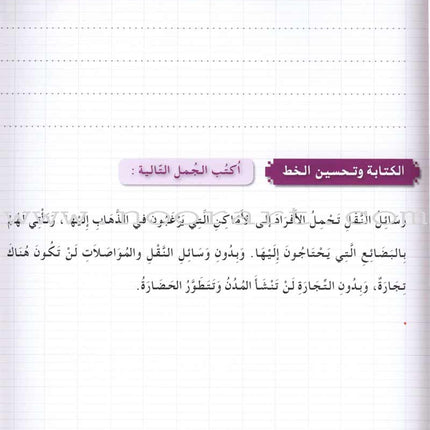 الكتابة وتحسين الخط
أكتُب الجُمل التّالية :
وَسَائِلُ النَّقْلِ تَحْمِلُ الأَفْرَادَ إِلَى الأَمَاكِنِ الَّتِي يَرْغَبُونَ في الذَّهَابِ إِلَيْهَا، وَتَأْتِي لَهُمْ
بِالبَضَائِعِ الَّتِي يَحْتَاجُونَ إِلَيْهَا. وَبِدُونِ وَسَائِلِ النَّقْلِ والمُوَاصَلاَتِ لَنْ تَكُونَ هُنَاكَ
تِجَارَةٌ، وَبِدُونِ التِّجَارَةِ لَنْ تَنْشَأَ المُدُنُ وَتَتَطَوَّرُ الحَضَارَةُ.